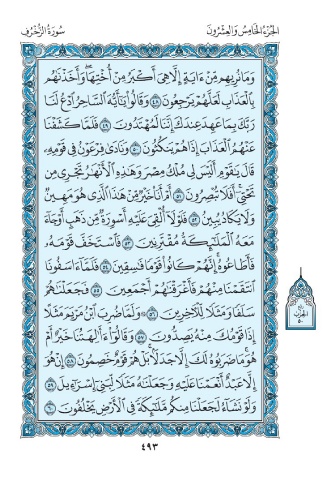 الجزء الخامس والعشرون
سورة الزخرف
وَمَا نُرِيهِم مِّنْ ءَايَةٍ إِلَّا هِيَ أَكْبَرُ مِنْ أُخْتِهَا وَأَخَذْنَٰهُم
بِٱلْعَذَابِ لَعَلَّهُمْ يَرْجِعُونَ ٤٨ وَقَالُوا۟ يَٰٓأَيُّهَ ٱلسَّاحِرُ ٱدْعُ لَنَا
رَبَّكَ بِمَا عَهِدَ عِندَكَ إِنَّنَا لَمُهْتَدُونَ ٤٩ فَلَمَّا كَشَفْنَا
عَنْهُمُ ٱلْعَذَابَ إِذَا هُمْ يَنكُثُونَ ٥٠ وَنَادَىٰ فِرْعَوْنُ فِي قَوْمِهِۦ
قَالَ يَٰقَوْمِ أَلَيْسَ لِي مُلْكُ مِصْرَ وَهَٰذِهِ ٱلْأَنْهَٰرُ تَجْرِي مِن
تَحْتِيٓ أَفَلَا تُبْصِرُونَ ٥١ أَمْ أَنَا۠ خَيْرٌ مِّنْ هَٰذَا ٱلَّذِي هُوَ مَهِينٌ
وَلَا يَكَادُ يُبِينُ ٥٢ فَلَوْلَآ أُلْقِيَ عَلَيْهِ أَسْوِرَةٌ مِّن ذَهَبٍ أَوْ جَآءَ
مَعَهُ ٱلْمَلَٰٓئِكَةُ مُقْتَرِنِينَ ٥٣ فَٱسْتَخَفَّ قَوْمَهُۥ
فَأَطَاعُوهُ إِنَّهُمْ كَانُوا۟ قَوْمًا فَٰسِقِينَ ٥٤ فَلَمَّآ ءَاسَفُونَا
ٱنتَقَمْنَا مِنْهُمْ فَأَغْرَقْنَٰهُمْ أَجْمَعِينَ ٥٥ فَجَعَلْنَٰهُمْ
سَلَفًا وَمَثَلًا لِّلْءَاخِرِينَ ٥٦ وَلَمَّا ضُرِبَ ٱبْنُ مَرْيَمَ مَثَلًا
إِذَا قَوْمُكَ مِنْهُ يَصِدُّونَ ٥٧ وَقَالُوٓا۟ ءَأَٰلِهَتُنَا خَيْرٌ أَمْ
هُوَ مَا ضَرَبُوهُ لَكَ إِلَّا جَدَلًۢا بَلْ هُمْ قَوْمٌ خَصِمُونَ ٥٨ إِنْ هُوَ
إِلَّا عَبْدٌ أَنْعَمْنَا عَلَيْهِ وَجَعَلْنَٰهُ مَثَلًا لِّبَنِيٓ إِسْرَٰٓءِيلَ ٥٩
وَلَوْ نَشَآءُ لَجَعَلْنَا مِنكُم مَّلَٰٓئِكَةً فِي ٱلْأَرْضِ يَخْلُفُونَ ٦٠
٤٩٣